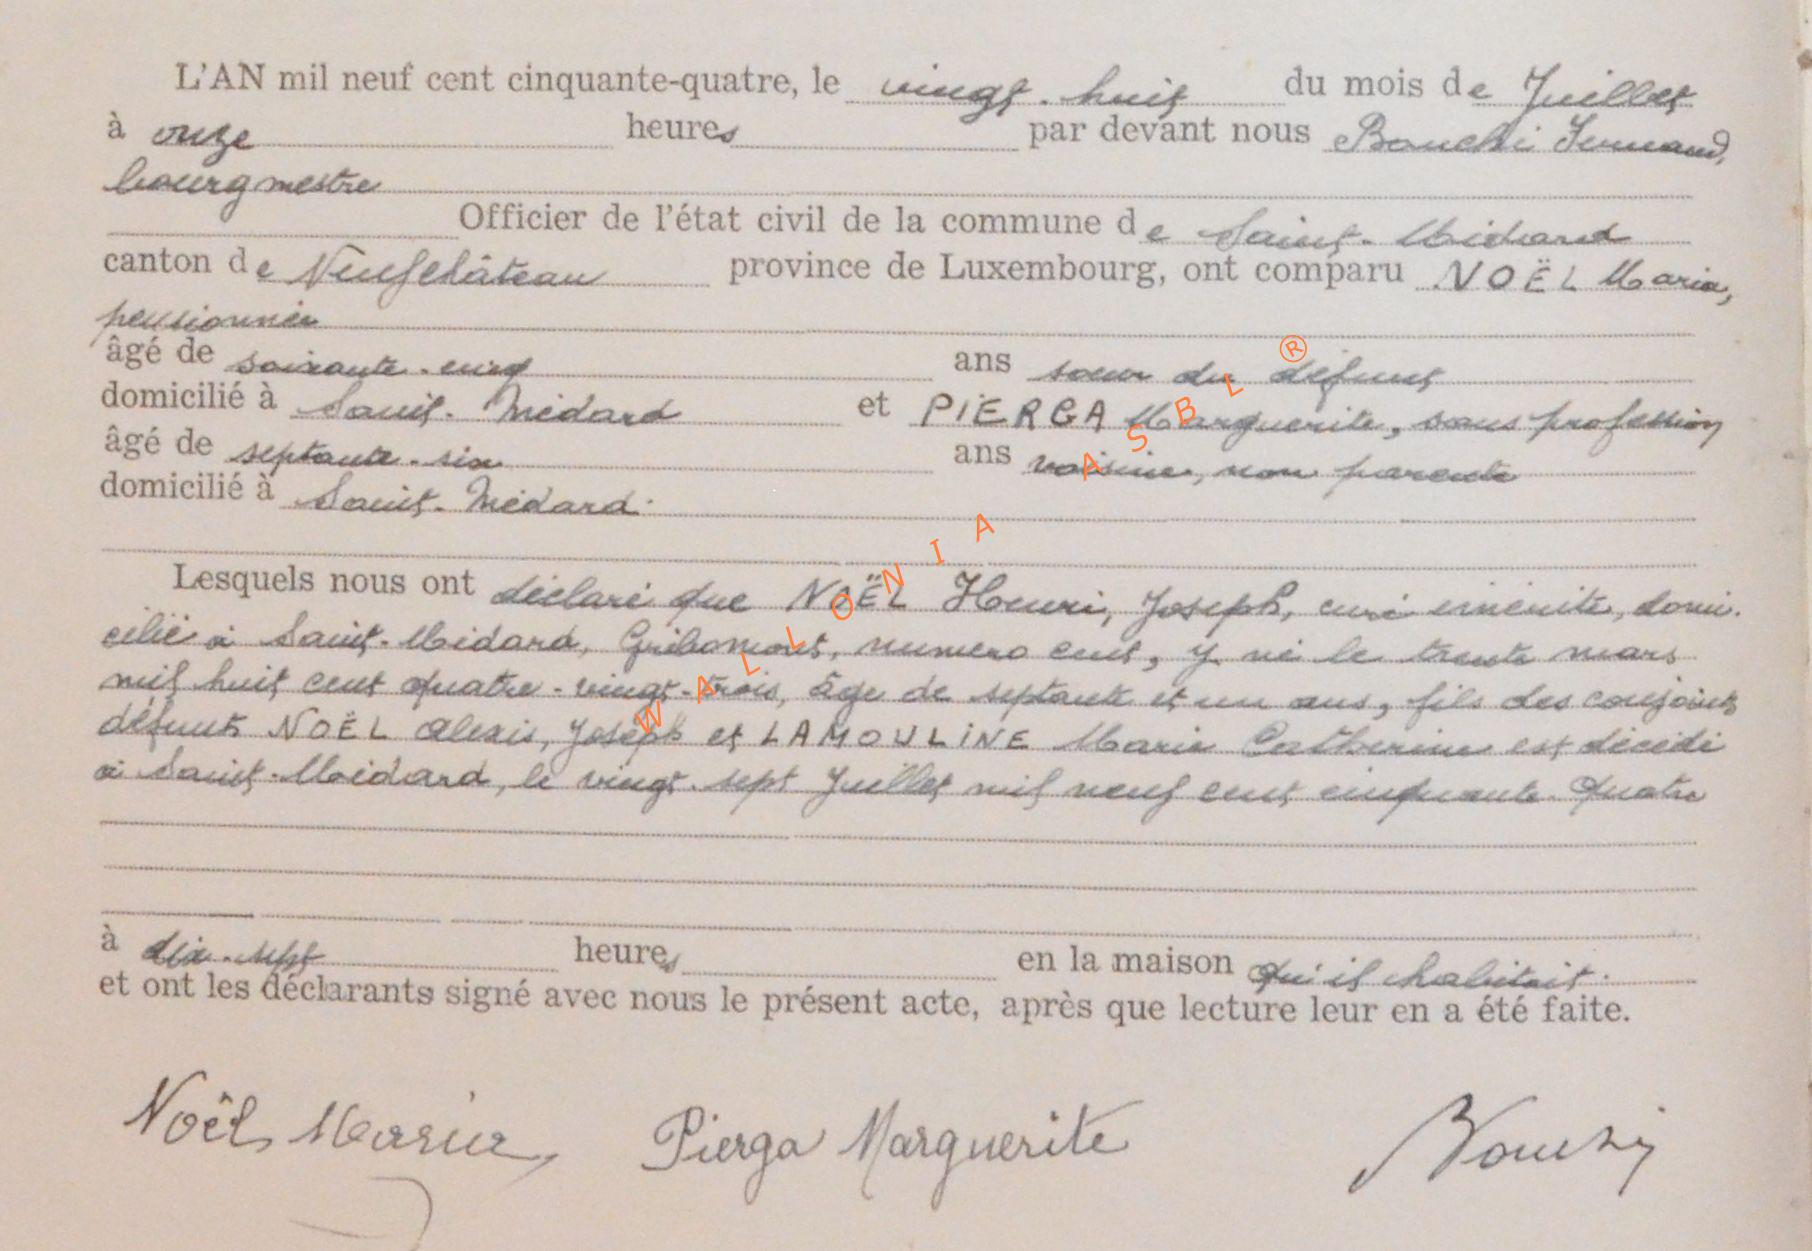 L'AN mil neuf cent cinquante-quatre, le vingt-huit du mois de Juillet
à onze heures par devant nous Bouchi Fernand,
bourgmestre
Officier de l'état civil de la commune de Saint-Médard
canton de Neufchâteau province de Luxembourg, ont comparu NOËL Maria,
pensionnée
âgé de soixante-cinq ans soeur du défunt
domicilié à Saint-Médard et PIERGA Marguerite, sans profession
âgé de septante-six ans voisine, non parente
domicilié à Saint-Médard.
Lesquels nous ont déclaré que NOËL Henri, Joseph, curé émérite, domi-
cilié à Saint-Médard, Gribomont, numéro cent, y né le trente mars
mil huit cent quatre-vingt-trois, âgé de septante et un ans, fils des conjoints
défunts NOËL Alexis, Joseph et LAMOULINE Marie Catherine est décédé
à Saint-Médard, le vingt-sept Juillet mil neuf cent cinquante-quatre
à dix-sept heures en la maison qu'il habitait.
et ont les déclarants signé avec nous le présent acte, après que lecture leur en a été faite.
Noël Maria, Pierga Marguerite
WALLONIA ASBL ®